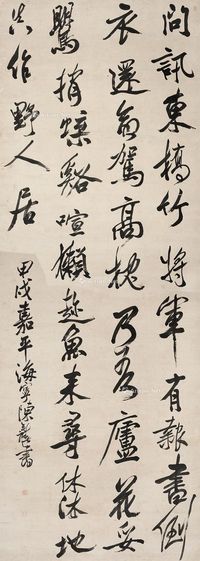 問訊東橋竹將軍有報書倒
衣還命駕高枕乃吾廬花妥
鶯捎蝶谿喧獺趁魚來尋休沐地
真作野人居
甲戌嘉平海寧陳奕禧書